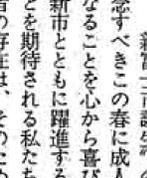 新富士市誕生の
念すべきこの春に成人
なることを心から喜び
新市とともに躍進する
どを期待される私たち
者の存在は、そのため